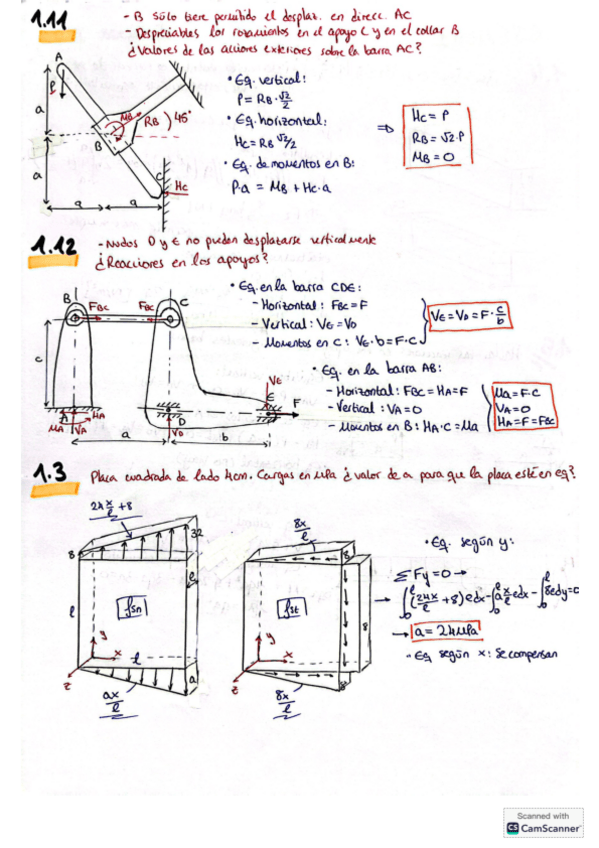 1.11
- B sólo tiene permitido el desplaz. en direcc. AC
- Despreciables los rozamientos en el apoyo C y en el collar B
¿Valores de las acciones exteriores sobre la barra AC?
A
P
a
a
MB
RB
45°
B
C
Hc
a
a
• Eq. vertical:
P = RB · √2/2
• Eq. horizontal:
Hc = RB √2/2
• Eq. de momentos en B:
P·a = MB + Hc·a
⇒
Hc = P
RB = √2·P
MB = 0
1.12
- Nudos D y E no pueden desplazarse verticalmente
¿Reacciones en los apoyos?
B
FBC
FBC
C
c
A
MA
VA
HA
D
VD
VE
E
F
a
b
• Eq. en la barra CDE:
- Horizontal: FBC = F
- Vertical: VE = VD
- Momentos en C: VE·b = F·C
VE = VD = F · c/b
• Eq. en la barra AB:
- Horizontal: FBC = HA = F
- Vertical: VA = 0
- Momentos en B: HA·C = MA
MA = F·C
VA = 0
HA = F = FBC
1.3
Placa cuadrada de lado 4cm. Cargas en MPa ¿valor de a para que la placa esté en eq?
24 x/l + 8
8
32
e
l
fsn
y
x
z
l
a
ax/l
8x/l
8
fst
8
y
x
z
8
8x/l
• Eq. según y:
ΣFy = 0 →
→ ∫₀ˡ (24x/l + 8) e dx - ∫₀ˡ a x/l e dx - ∫₀ˡ 8 e dy = 0
→ a = 24 MPa
• Eq según x: Se compensan
Scanned with
CS CamScanner